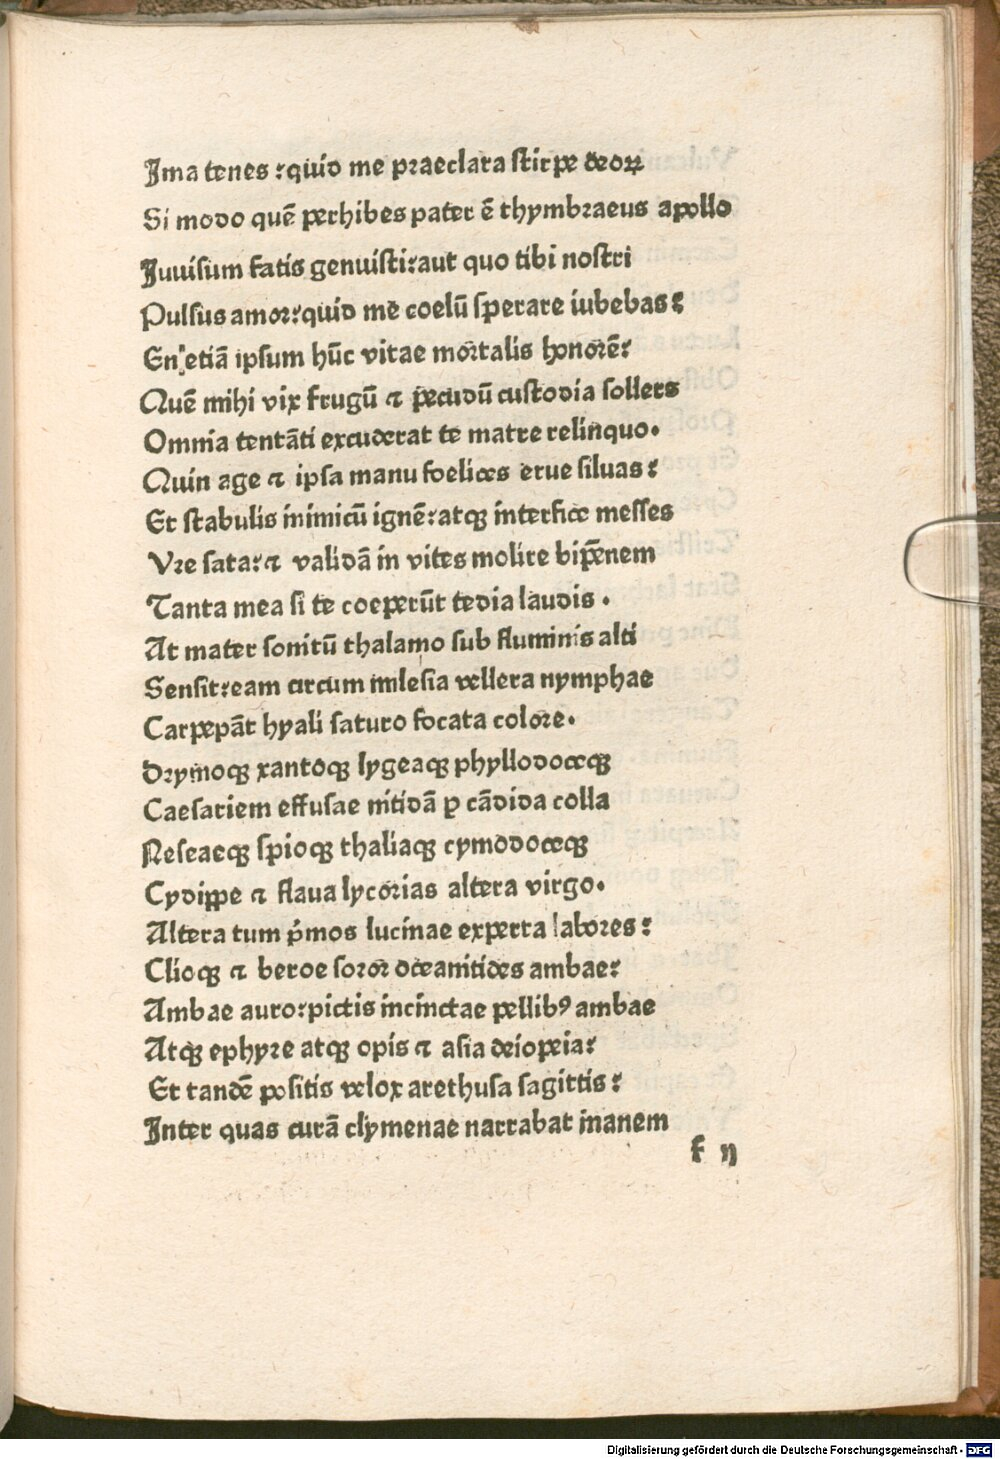 Ima tenes :quid me praeclara stirpe deoꝝ
Si modo quē perhibes pater ē thymbraeus apollo
Iuuisum fatis genuisti:aut quo tibi nostri
Pulsus amor:quid me coelū sperare iubebas:
En etiā ipsum hūc vitae mortalis honorē:
Quē mihi vix frugū ⁊ pecudū custodia sollers
Omnia tentāti excuderat te matre relinquo.
Quin age ⁊ ipsa manu foelices erue siluas:
Et stabulis inimicū ignē:atqꝫ interfice messes
Vre sata:⁊ validā in vites molire bipēnem
Tanta mea si te coeperūt tedia laudis .
At mater sonitū thalamo sub fluminis alti
Sensit:eam circum milesia vellera nymphae
Carpepāt hyali saturo focata colore.
Drymoqꝫ xantoqꝫ lygeaqꝫ phyllodoceqꝫ
Caesariem effusae nitidā ꝑ cādida colla
Neseaeqꝫ spioqꝫ thaliaqꝫ cymodoceqꝫ
Cydippe ⁊ flaua lycorias altera virgo.
Altera tum p̄mos lucinae experta labores:
Clioqꝫ ⁊ beroe soror oceanitides ambae:
Ambae auro:pictis incinctae pellibꝰ ambae
Atqꝫ ephyre atqꝫ opis ⁊ asia deiopeia:
Et tandē positis velox arethusa sagittis:
Inter quas curā clymenae narrabat inanem
f ij
Digitalisierung gefördert durch die Deutsche Forschungsgemeinschaft - DFG